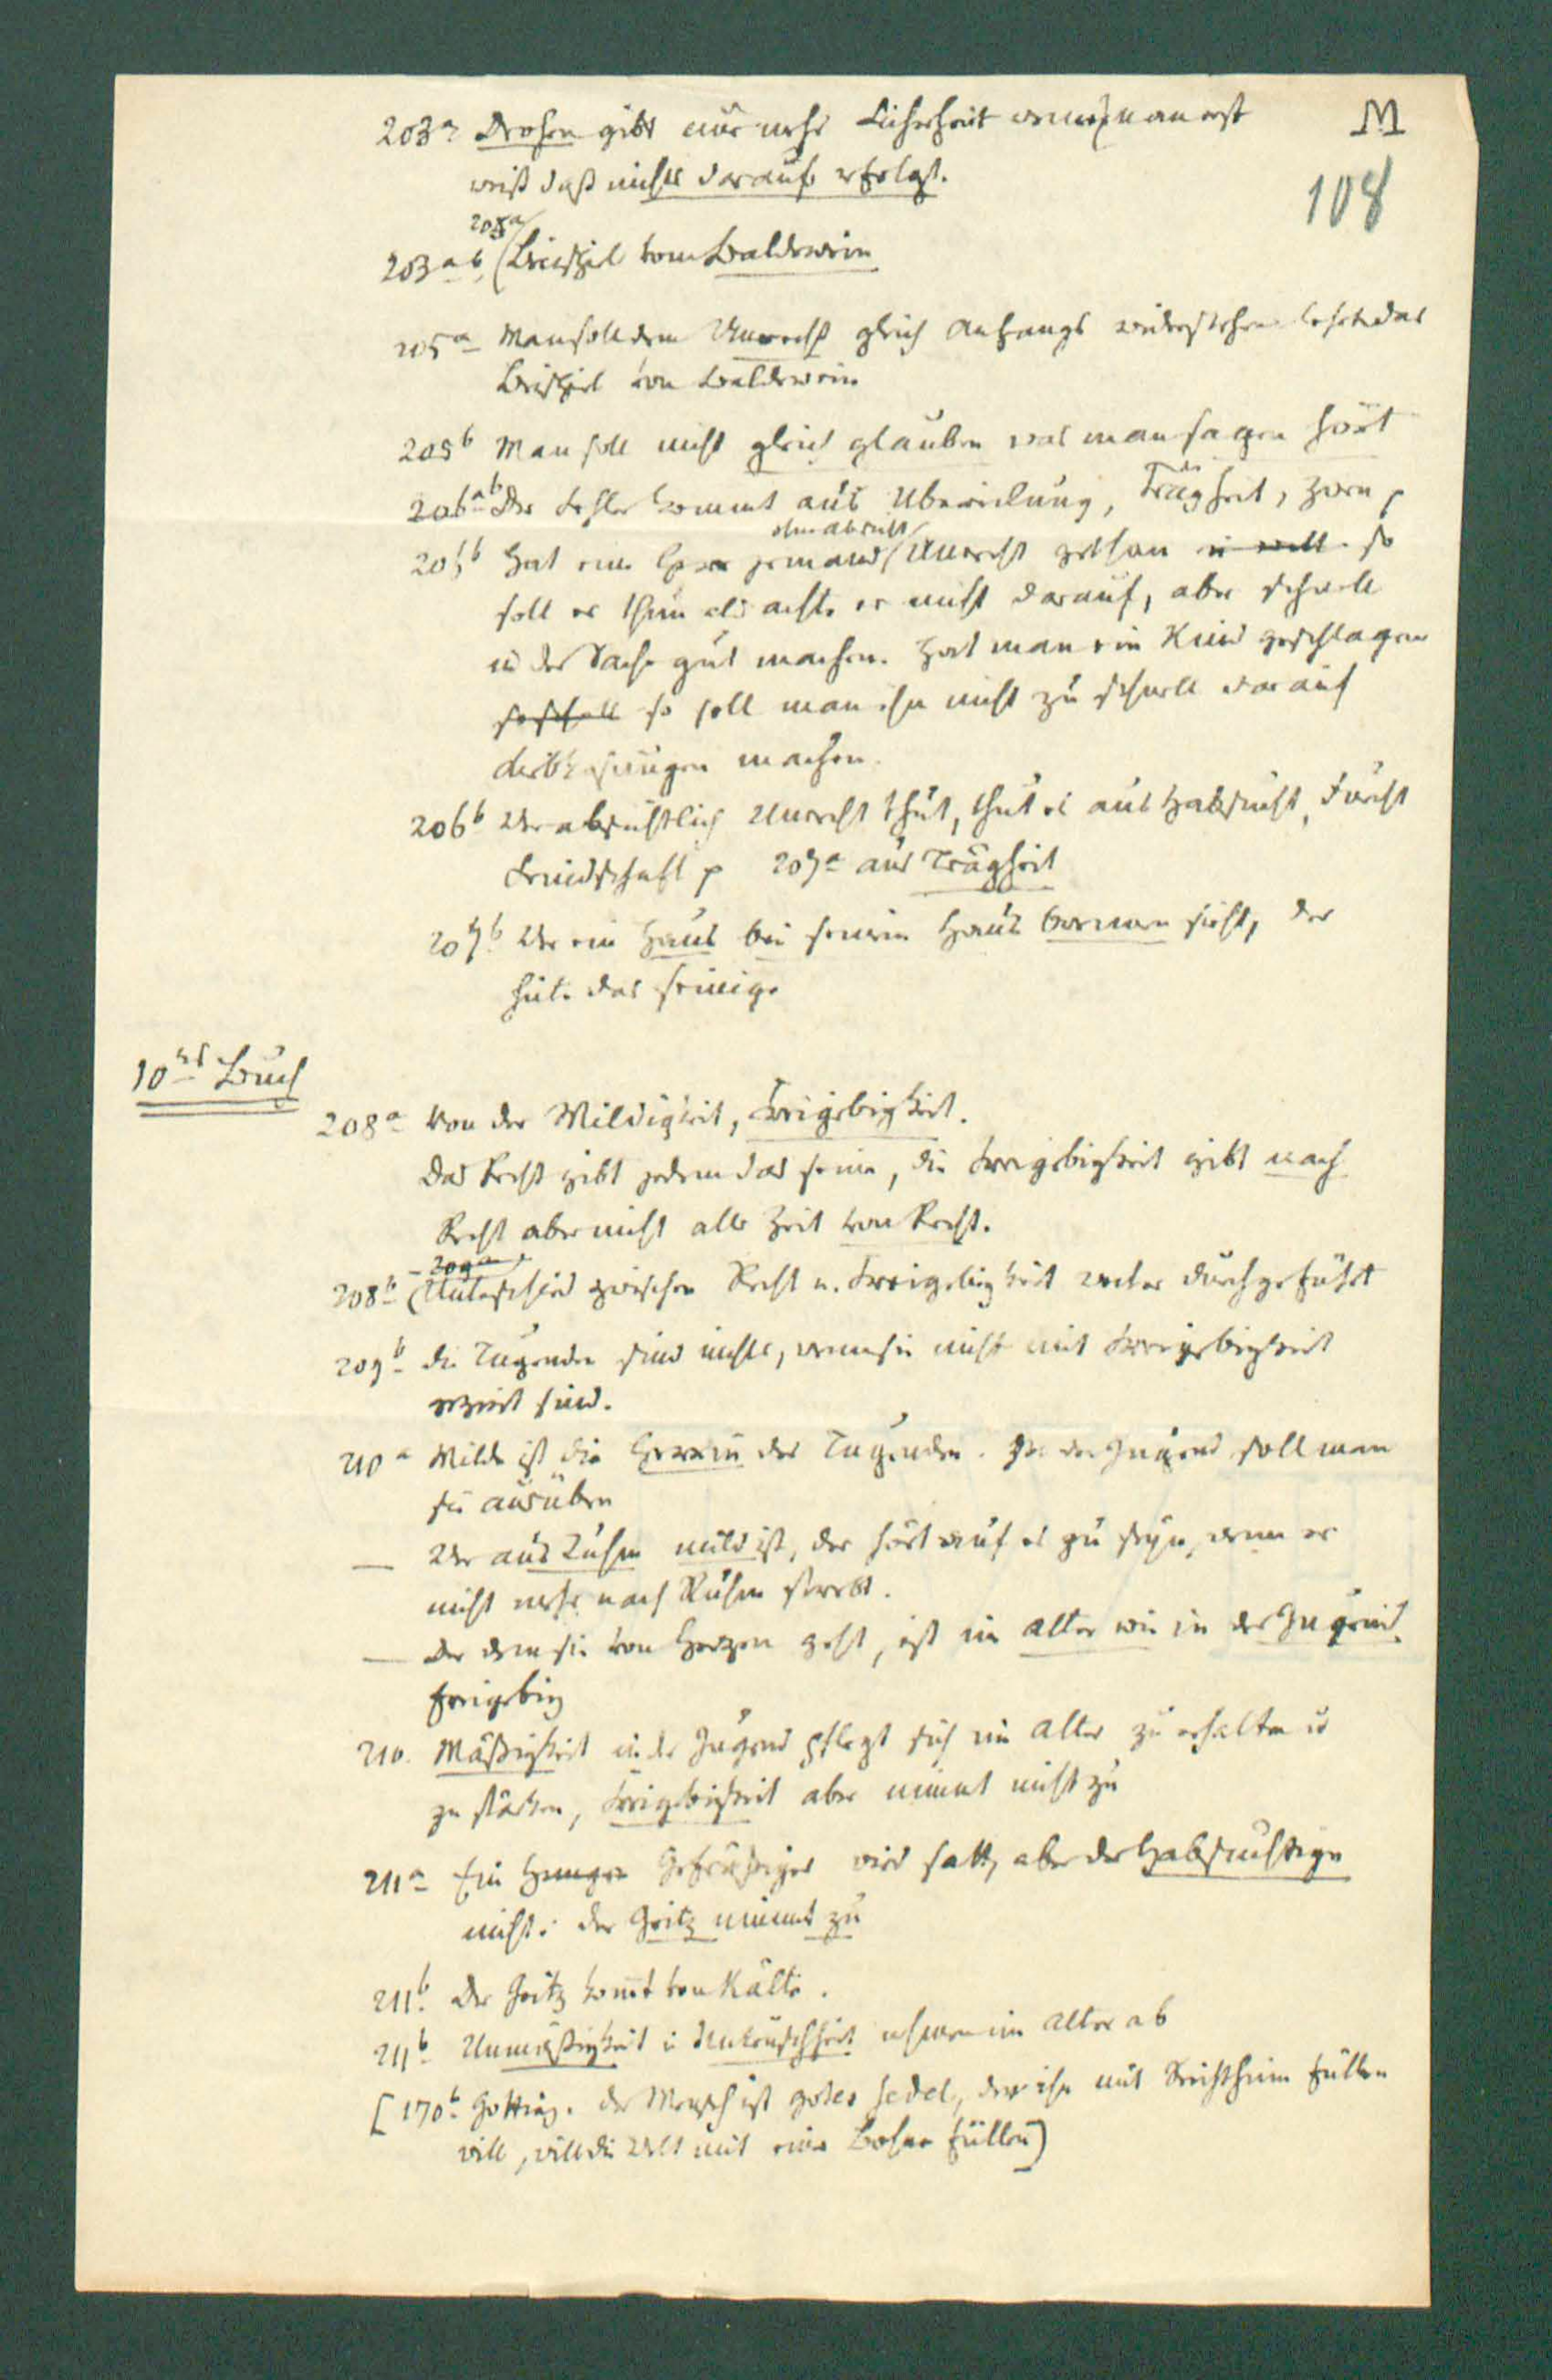 M
108
203a Drohen gibt nur mehr Sicherheit wenn man erst
weiß daß nichts darauf erfolgt.
205a
203ab (Beispiel vom Baldewein
205a Man soll dem Unrecht gleich Anfangs widerstehen lehrt das
Beispiel von Baldewein
205b Man soll nicht gleich glauben was man sagen hört
206ab Der Fehler kommt aus Übereilung, Trägheit, Zorn p
ohne Absicht
206b Hat ein Herr jemand Unrecht gethan so
soll er thun als achte er nicht darauf, aber schnell
die Sache gut machen. Hat man ein Kind geschlagen
so soll man ihm nicht zu schnell darauf
Liebkosungen machen.
206b Wer absichtlich Unrecht thut, thut es aus Habsucht, Furcht
Feindschaft p 207a aus Trägheit
207b Wer ein Haus bei seinem Haus brennen sieht, der
hüte das seinige
10tes Buch
208a Von der Mildigkeit, Freigebigkeit.
Das Recht gibt jedem das seine, die Freigebigkeit gibt nach
Recht aber nicht alle Zeit von Recht.
– 209a
208b (Unterschied zwischen Recht u. Freigebigkeit weiter durchgeführt
209b die Tugenden sind nichts, wenn sie nicht mit Freigebigkeit
geziert sind.
210a Milde ist die Herrin der Tugenden. In der Jugend soll man
sie ausüben
— Wer aus Ruhm mild ist, der hört auf es zu seyn, wenn er
nicht mehr nach Ruhm strebt.
— Der dem sie von Herzen geht, ist im Alter wie in der Jugend
freigebig
210. Mäßigkeit in der Jugend pflegt sich im Alter zu erhalten u
zu stärken, Freigebigkeit aber nimmt nicht zu
211a Ein Hunger Gefräßiger wird satt, aber der Habsüchtige
nicht: der Geitz nimmt zu
211b. Der Geitz komt von Kälte.
211b Unmäßigkeit u Unkeuschheit nehmen im Alter ab
[170b Götting. der Mensch ist gotes sedel, der ihn mit Reichthum füllen
will, will die Welt mit einer Bohne füllen]